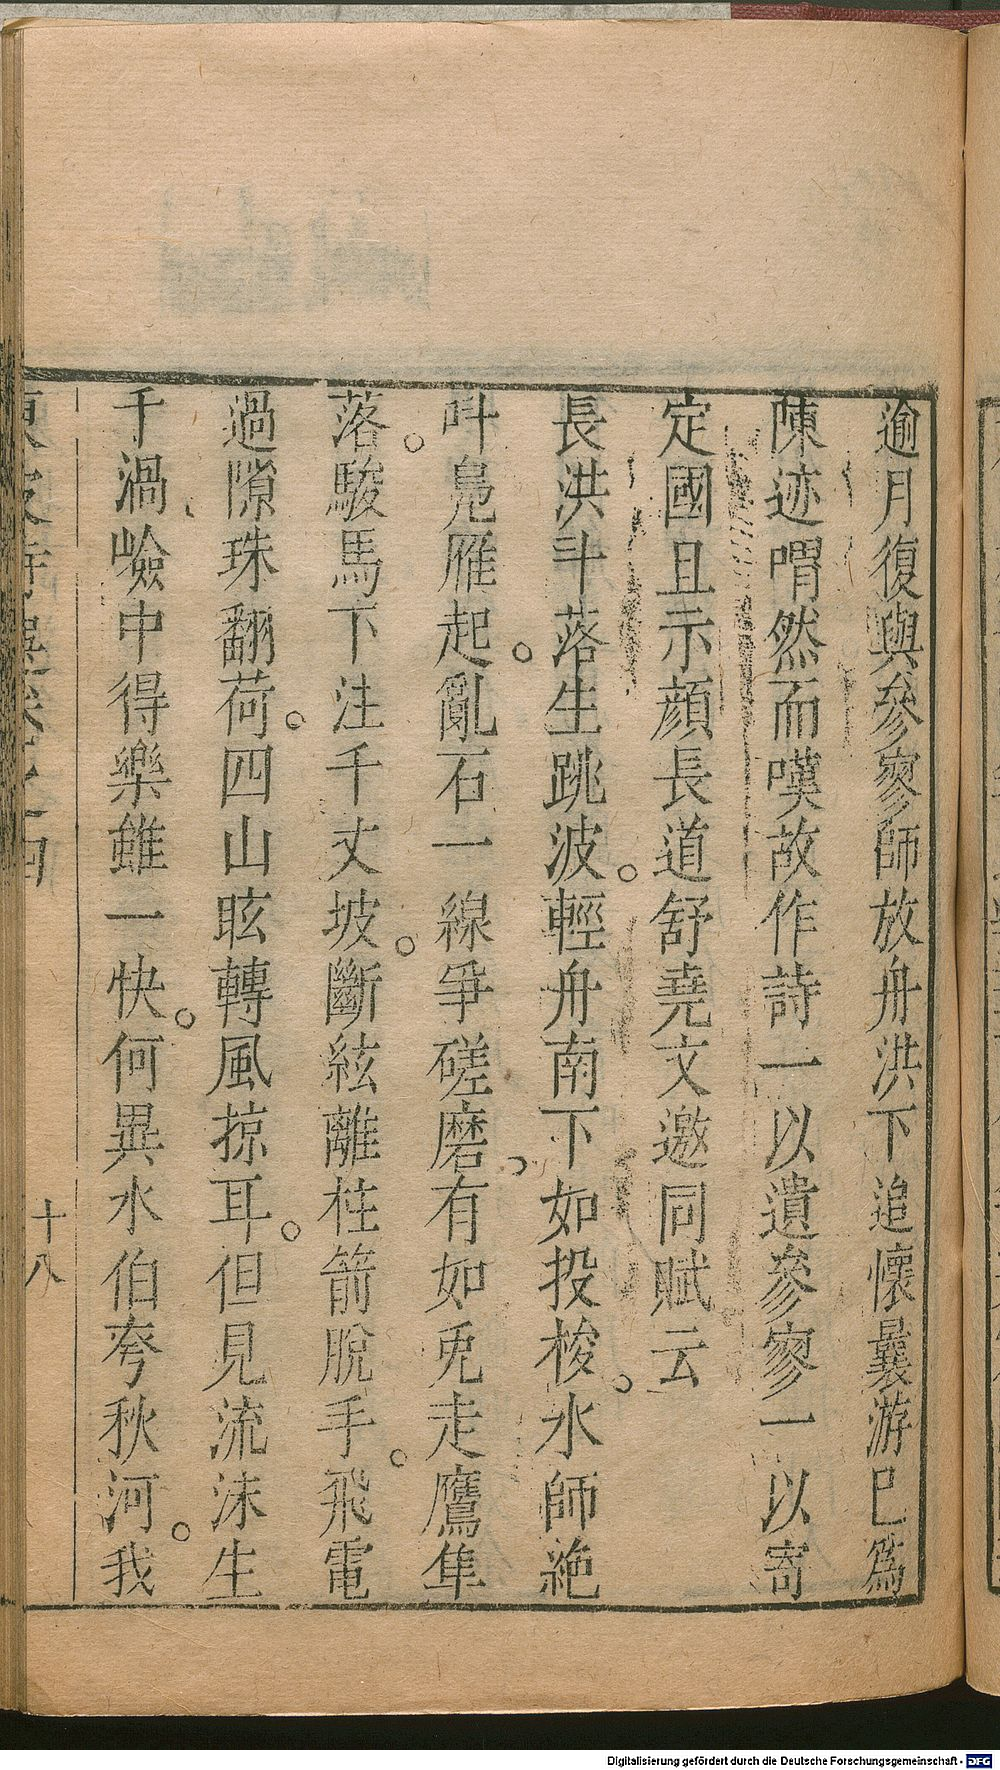 逾月復與參寥師放舟洪下追懷曩游巳爲
陳迹喟然而嘆故作詩一以遺參寥一以寄
定國且示顔長道舒堯文邀同賦云
長洪斗落生跳波。輕舟南下如投梭。水師絶
叫鳬雁起。亂石一線爭磋磨。有如兎走鷹隼
落。駿馬下注千丈坡。斷絃離柱箭脫手。飛電
過隙珠翻荷。四山眩轉風掠耳。但見流沫生
千渦、嶮中得樂雖一快。何異水伯夸秋河。我
十八
Digitalisierung gefördert durch die Deutsche Forschungsgemeinschaft - DFG